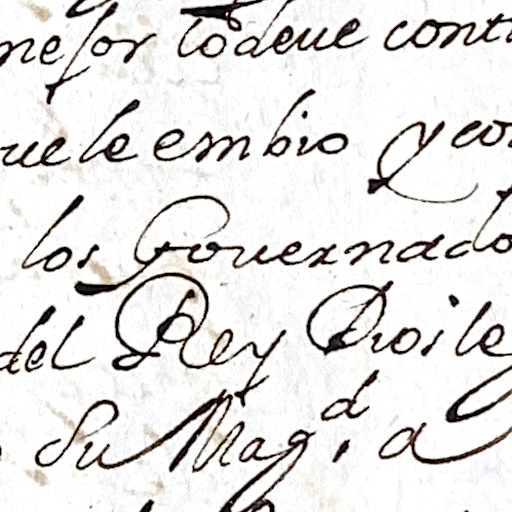 mejor lo deue cont
ue le embio y con
los Gouernado
del Rey Dios le
Su Mag.d a